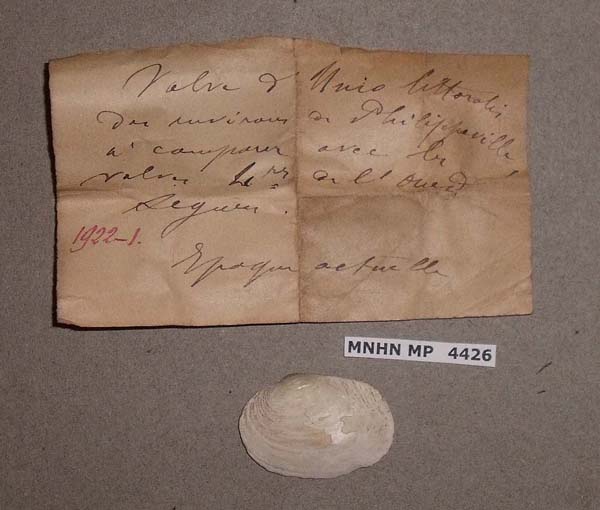 Valve d'Unio littoralis
des environs de Philippeville
à comparer avec les
valves 4res de l'Oued
Seguen.
1922-1.
Epoque actuelle
MNHN MP 4426